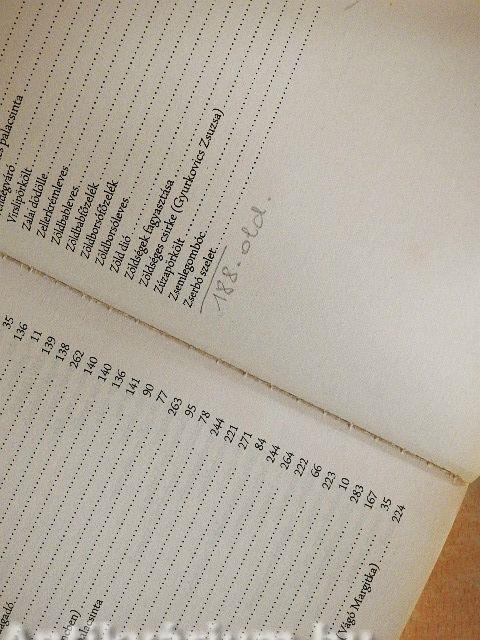 palacsinta
Virslipörkölt
Zalai dödölle
Zellerkrémleves
Zöldbableves
Zöldbabfőzelék
Zöldborsófőzelék
Zöldborsóleves
Zöld dió
Zöldségek fagyasztása
Zöldséges csirke (Gyurkovics Zsuzsa)
Zúzapörkölt
Zsemlegombóc
Zserbó szelet
188. old.
35
136
11
139
138
262
140
140
136
141
90
77
263
95
78
244
221
271
84
244
264
222
66
223
10
283
167
35
224
(Vágó Margitka)